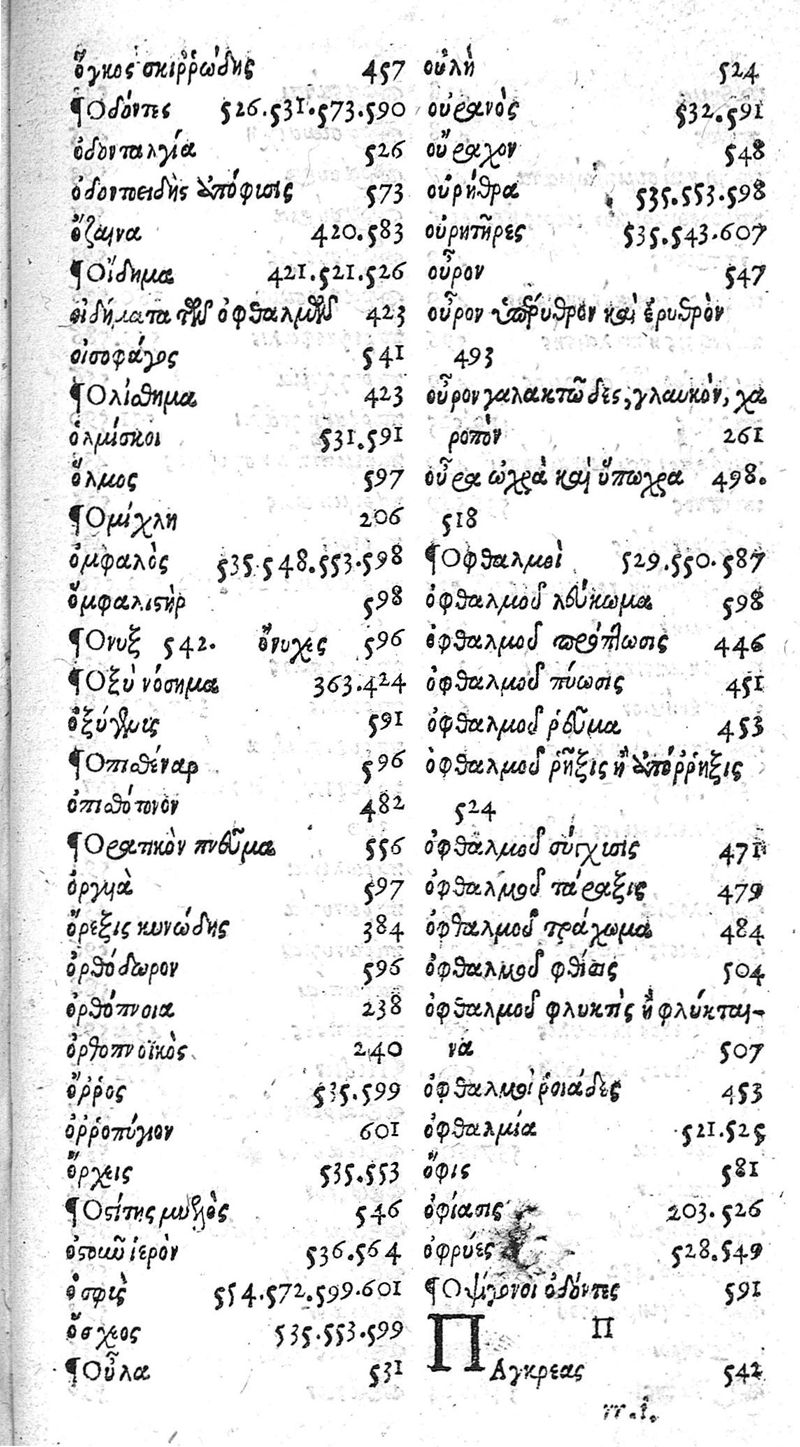 ὄγκος σκιῤῥώδης 457
¶Οδόντες 526.531.573.590
ὀδονταλγία 526
ὀδοντοειδὴς ἀπόφισις 573
ὄζαινα 420.583
¶Οἴδημα 421.521.526
οἰδήματα τῶν ὀφθαλμῶν 423
οἰσοφάγος 541
¶Ολίσθημα 423
ὁλμίσκοι 531.591
ὅλμος 597
¶Ομίχλη 206
ὀμφαλὸς 535.548.553.598
ὄμφαλιστὴρ 598
¶Ονυξ 542. ὄνυχες 596
¶Οξὺ νόσημα 363.424
¶Οπισθέναρ 596
ὀπισθότονόν 482
¶Ορατικὸν πνεῦμα 556
ὀργυιὰ 597
ὄρεξις κυνώδης 384
ὀρθόδωρον 596
ὀρθόπνοια 238
ὀρθοπνοϊκὸς 240
ὄῤῥος 535.599
ὀῤῥοπύγιον 601
ὄρχεις 535.553
¶Οστίτης μυελὸς 546
ὀστοιῶ ἱερὸν 536.564
ὀσφὶς 554.572.599.601
ὄσχεος 535.553.599
¶Οὖλα 531
οὐλὴ 524
οὐρανὸς 532.591
οὔραχον 548
οὐρήθρα 535.553.598
οὐρητῆρες 535.543.607
οὖρον 547
οὖρον ὑπέρυθρον καὶ ἐρυθρὸν
493
οὖρον γαλακτῶδες, γλαυκὸν, χα
ροπὸν 261
οὖρα ὠχρὰ καὶ ὕπωχρα 498.
518
¶Οφθαλμοὶ 529.550.587
ὀφθαλμοῦ λεύκωμα 598
ὀφθαλμοῦ πρόπτωσις 446
ὀφθαλμοῦ πύωσις 451
ὀφθαλμοῦ ῥεῦμα 453
ὀφθαλμοῦ ῥῆξις ἢ ἀπόῤῥηξις
524
ὀφθαλμοῦ σύγχισις 471
ὀφθαλμοῦ τάραξις 479
ὀφθαλμοῦ τράχωμα 484
ὀφθαλμοῦ φθίσις 504
ὀφθαλμοῦ φλυκτὶς ἢ φλύκται-
να 507
ὀφθαλμοὶ ῥοιάδες 453
ὀφθαλμία 521.525
ὄφις 581
ὀφίασις 203.526
ὀφρύες 528.549
¶Οψίγονοι ὀδόντες 591
Π
ΠΑγκρεας 542